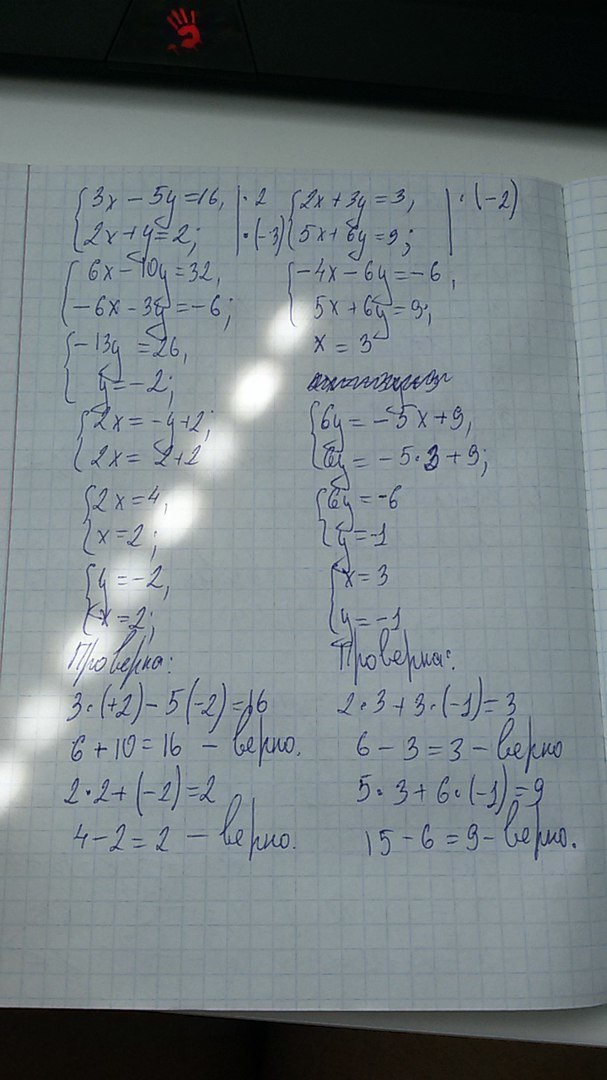 3x - 5y = 16, | · 2
2x + y = 2; | · (-3)
6x - 10y = 32,
-6x - 3y = -6;
-13y = 26,
y = -2;
2x = -y + 2;
2x = 2 + 2
2x = 4,
x = 2;
y = -2,
x = 2;
Проверка:
3 · (+2) - 5(-2) = 16
6 + 10 = 16 - верно.
2 · 2 + (-2) = 2
4 - 2 = 2 - верно.
2x + 3y = 3, | · (-2)
5x + 6y = 9;
-4x - 6y = -6,
5x + 6y = 9;
x = 3
6y = -5x + 9,
6y = -5 · 3 + 9;
6y = -6
y = -1
x = 3
y = -1
Проверка:
2 · 3 + 3 · (-1) = 3
6 - 3 = 3 - верно
5 · 3 + 6 · (-1) = 9
15 - 6 = 9 - верно.